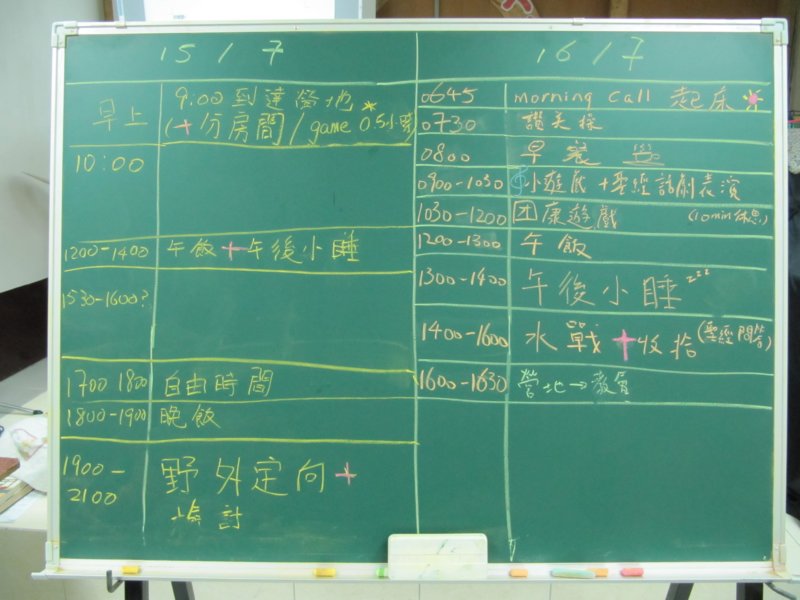 15 / 7
早上
9:00 到達營地
(+ 分房間 / game 0.5小時
10:00
1200-1400 午飯 + 午後小睡
1530-1600?
1700 1800 自由時間
1800-1900 晚飯
1900-2100 野外定向 +
計
16 / 7
0645 morning call 起床
0730 讚美操
0800 早餐
0900-1030 小遊戲 + 聖經話劇表演
1030-1200 团康遊戲 (10min休息)
1200-1300 午飯
1300-1400 午後小睡 zzz
1400-1600 水戰 + 收拾 (聖經問答)
1600-1630 營地→教會